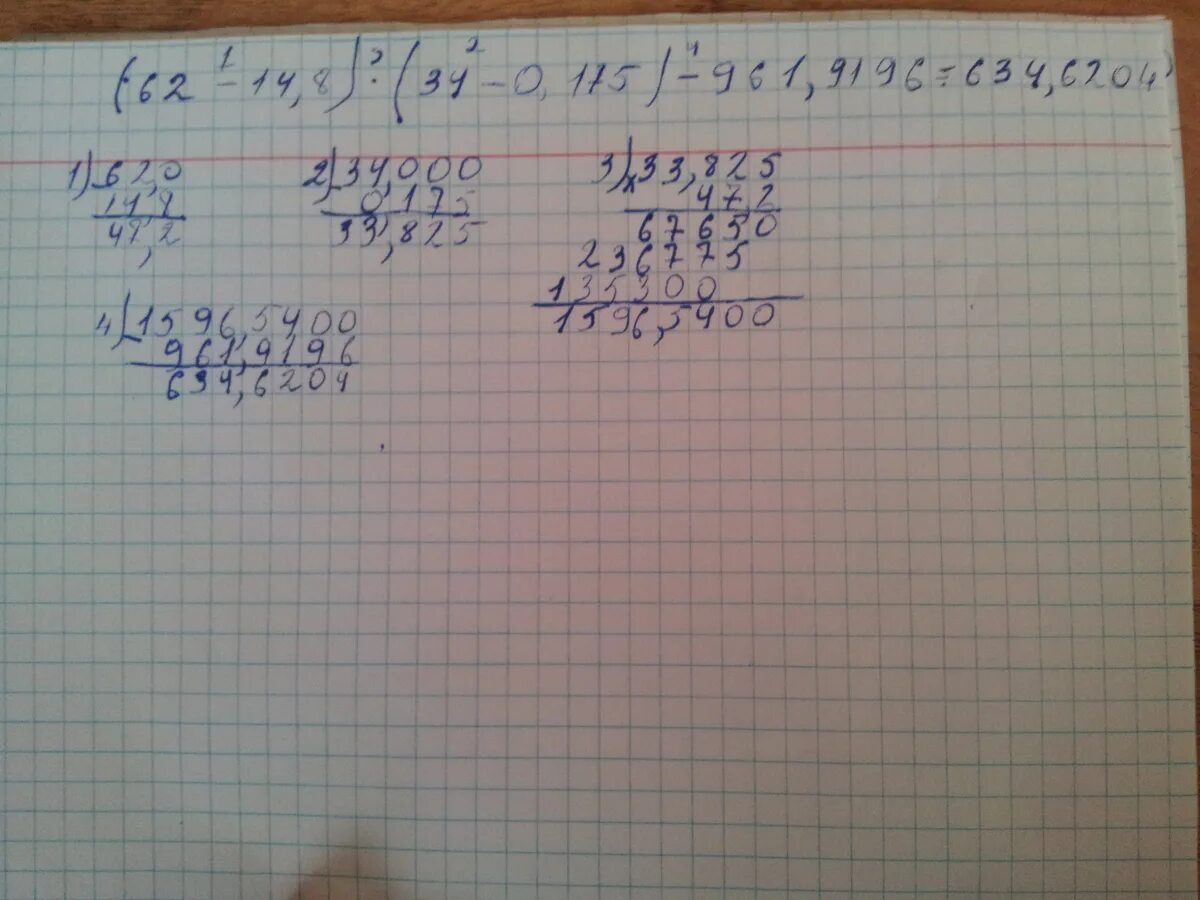 (62 - 14,8) · (34 - 0,175) - 961,9196 = 634,6204
1 3 2 4
1) 62,0
14,8
47,2
2) 34,000
0,175
33,825
3) × 33,825
47,2
67650
236775
135300
1596,5400
4) - 1596,5400
961,9196
634,6204